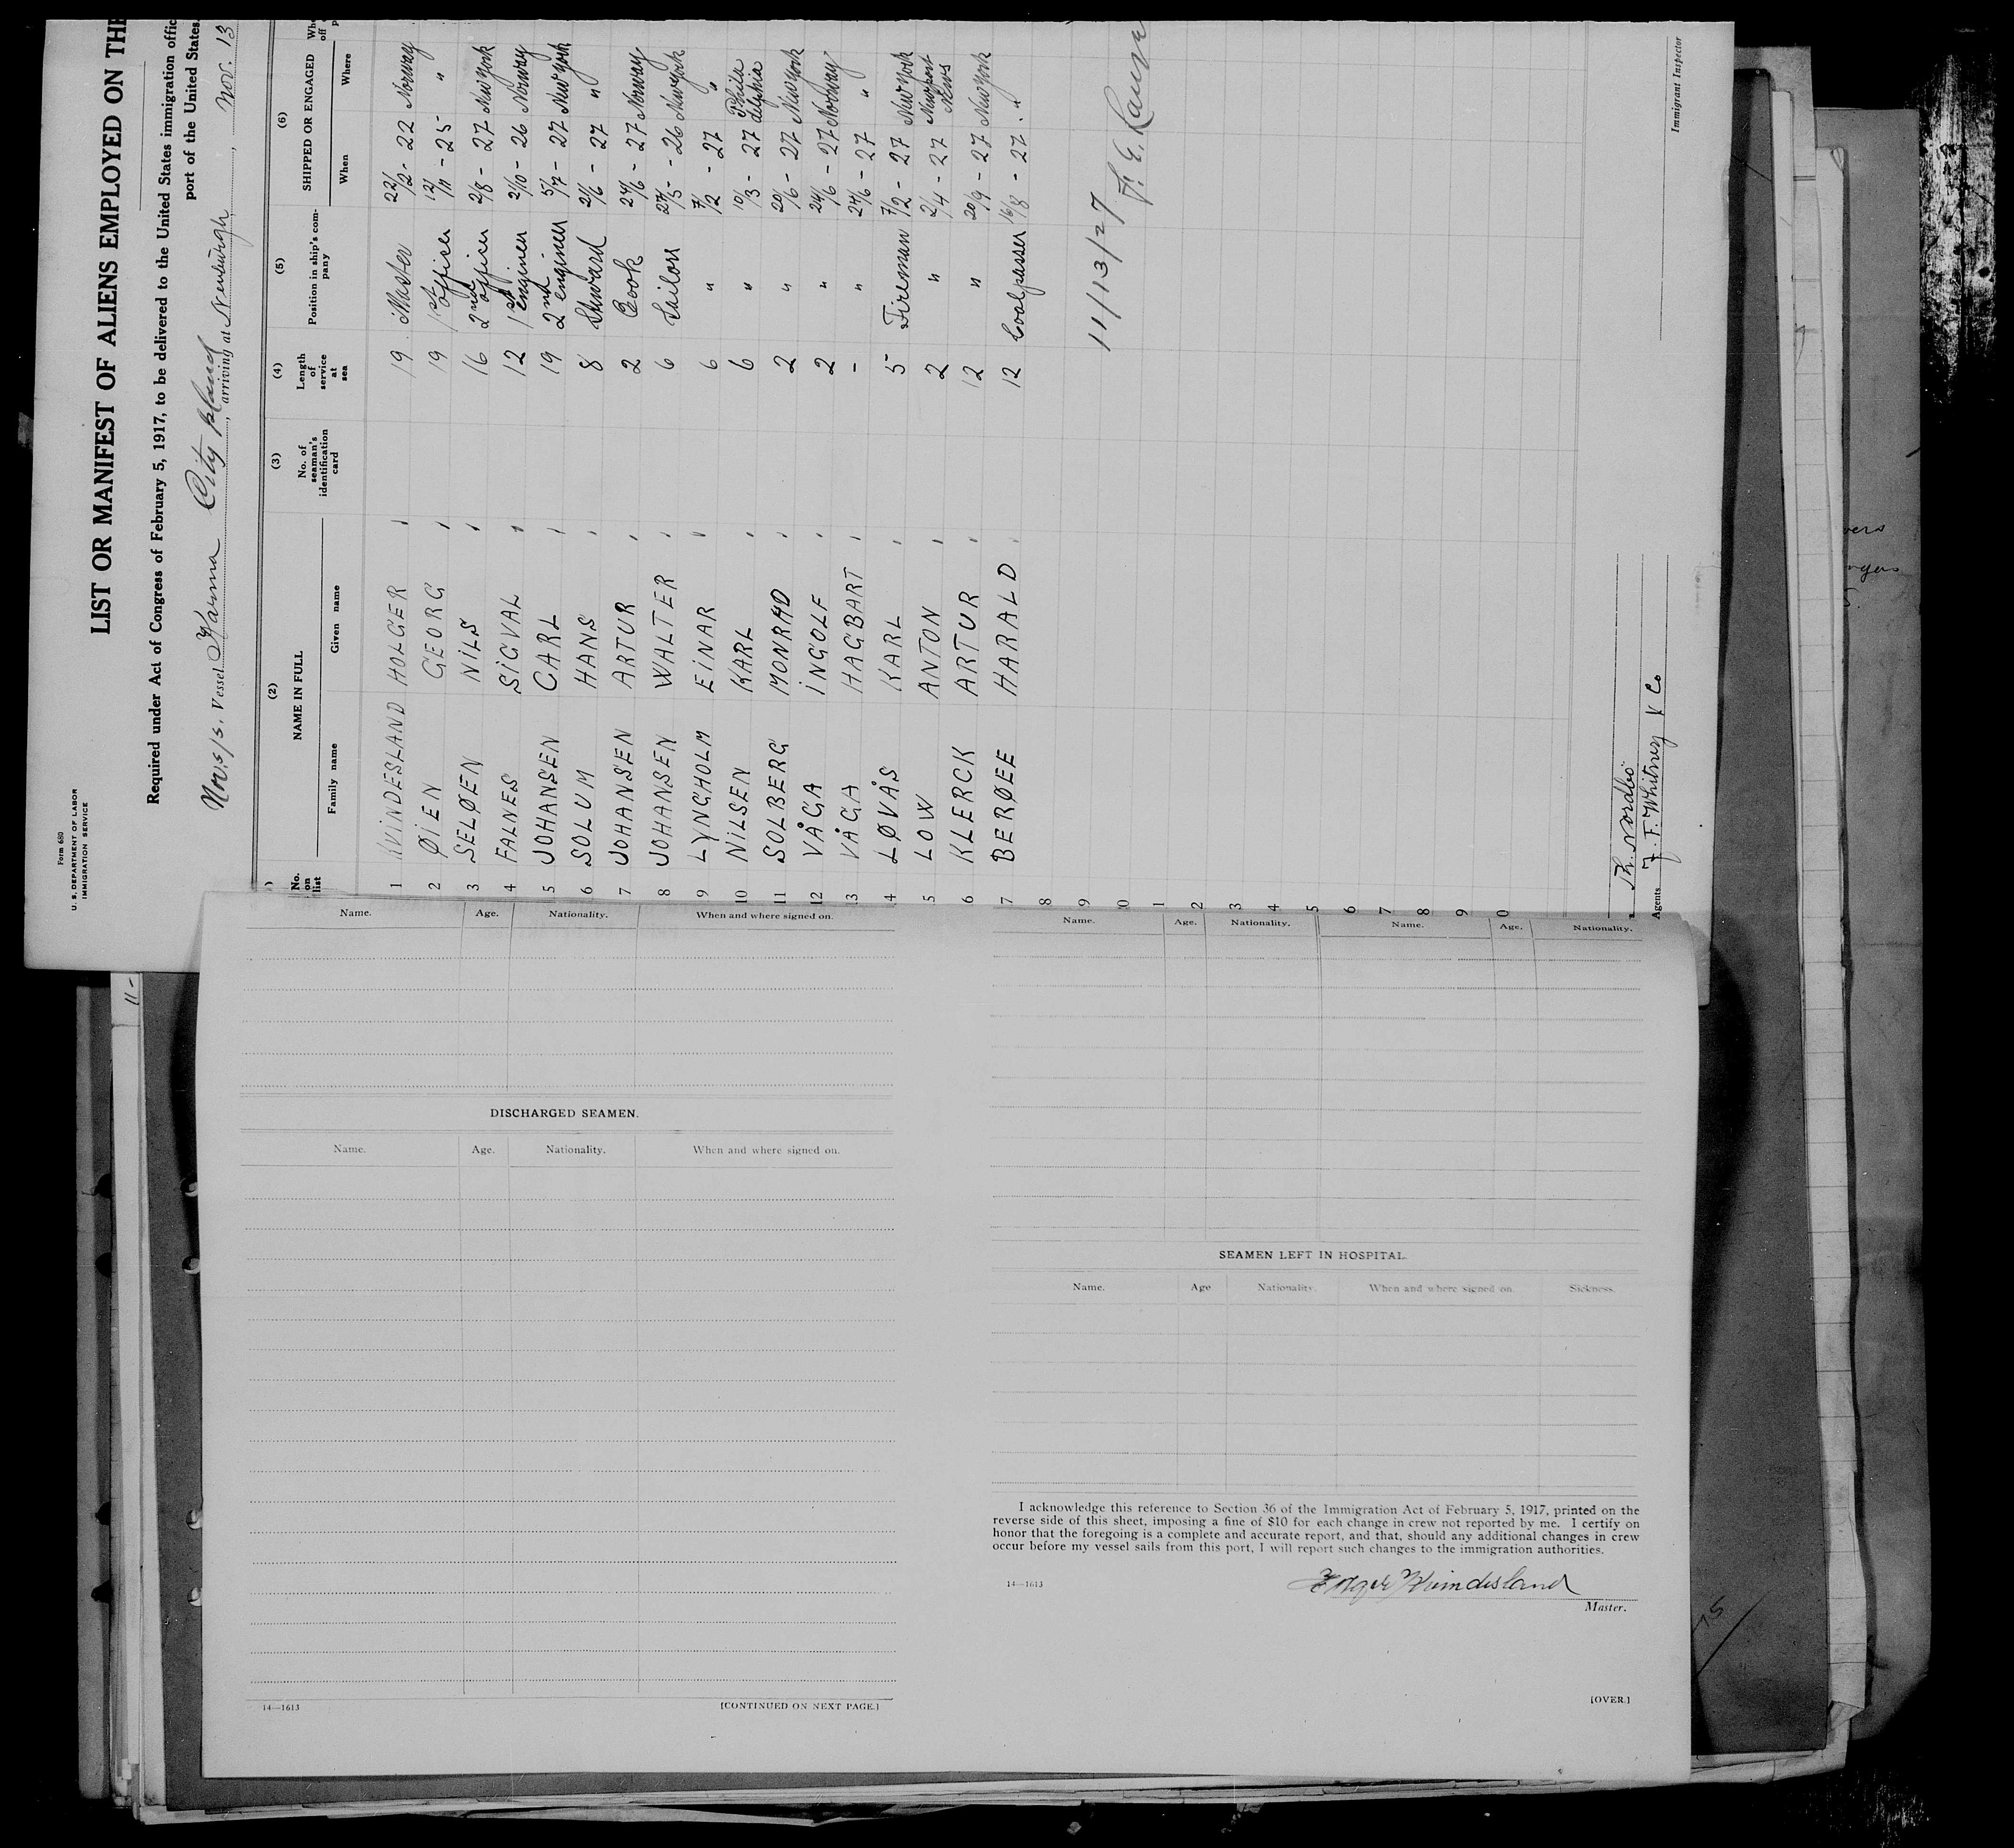 Form 680
U. S. DEPARTMENT OF LABOR
IMMIGRATION SERVICE
LIST OR MANIFEST OF ALIENS EMPLOYED ON THE
Required under Act of Congress of February 5, 1917, to be delivered to the United States immigration offic
port of the United States
Nor. s/s. Vessel City Island, arriving at Newburgh, Nov. 13
(2) (3) (4) (5) (6)
No. on list NAME IN FULL No. of seaman's identification card Length of service at sea Position in ship's company SHIPPED OR ENGAGED
Family name Given name When Where
1 KVINDESLAND HOLGER 19 Master 22/2 - 22 Norway
2 ØIEN GEORG 19 1st officer 12/11 - 25 "
3 SELØEN NILS 16 2nd officer 2/8 - 27 New York
4 FALNES SIGVAL 12 1st enginer 2/10 - 26 Norway
5 JOHANSEN CARL 19 2nd enginer 5/7 - 27 New York
6 SOLUM HANS 8 Steward 21/6 - 27 "
7 JOHANSEN ARTUR 2 Cook 24/6 - 27 Norway
8 JOHANSEN WALTER 6 Sailors 27/5 - 26 New York
9 LYNGHOLM EINAR 6 " 7/2 - 27 "
10 NILSEN KARL 6 " 10/3 - 27 Philadelphia
11 SOLBERG MONRAD 2 " 20/6 - 27 New York
12 VÅGA INGOLF 2 " 24/6 - 27 Norway
13 VÅGA HAGBART - " 24/6 - 27 "
4 LØVÅS KARL 5 Fireman 7/2 - 27 New York
5 LOW ANTON 2 " 2/4 - 27 Newport News
6 KLERCK ARTUR 12 " 20/9 - 27 New York
7 BERØEE HARALD 12 Coalpasser 16/8 - 27 "
8
9
0
1
2
3
4
5
6
7
8
9
0
11/13/27
Agents J. F. Whitney & Co
Immigrant Inspector
Name. Age. Nationality. When and where signed on.
DISCHARGED SEAMEN.
Name. Age. Nationality. When and where signed on.
14—1613 [CONTINUED ON NEXT PAGE.]
Name. Age. Nationality. Name. Age. Nationality.
SEAMEN LEFT IN HOSPITAL.
Name. Age Nationality. When and where signed on. Sickness.
I acknowledge this reference to Section 36 of the Immigration Act of February 5, 1917, printed on the
reverse side of this sheet, imposing a fine of $10 for each change in crew not reported by me. I certify on
honor that the foregoing is a complete and accurate report, and that, should any additional changes in crew
occur before my vessel sails from this port, I will report such changes to the immigration authorities.
14—1613
Holger Kvindesland
Master.
[OVER.]